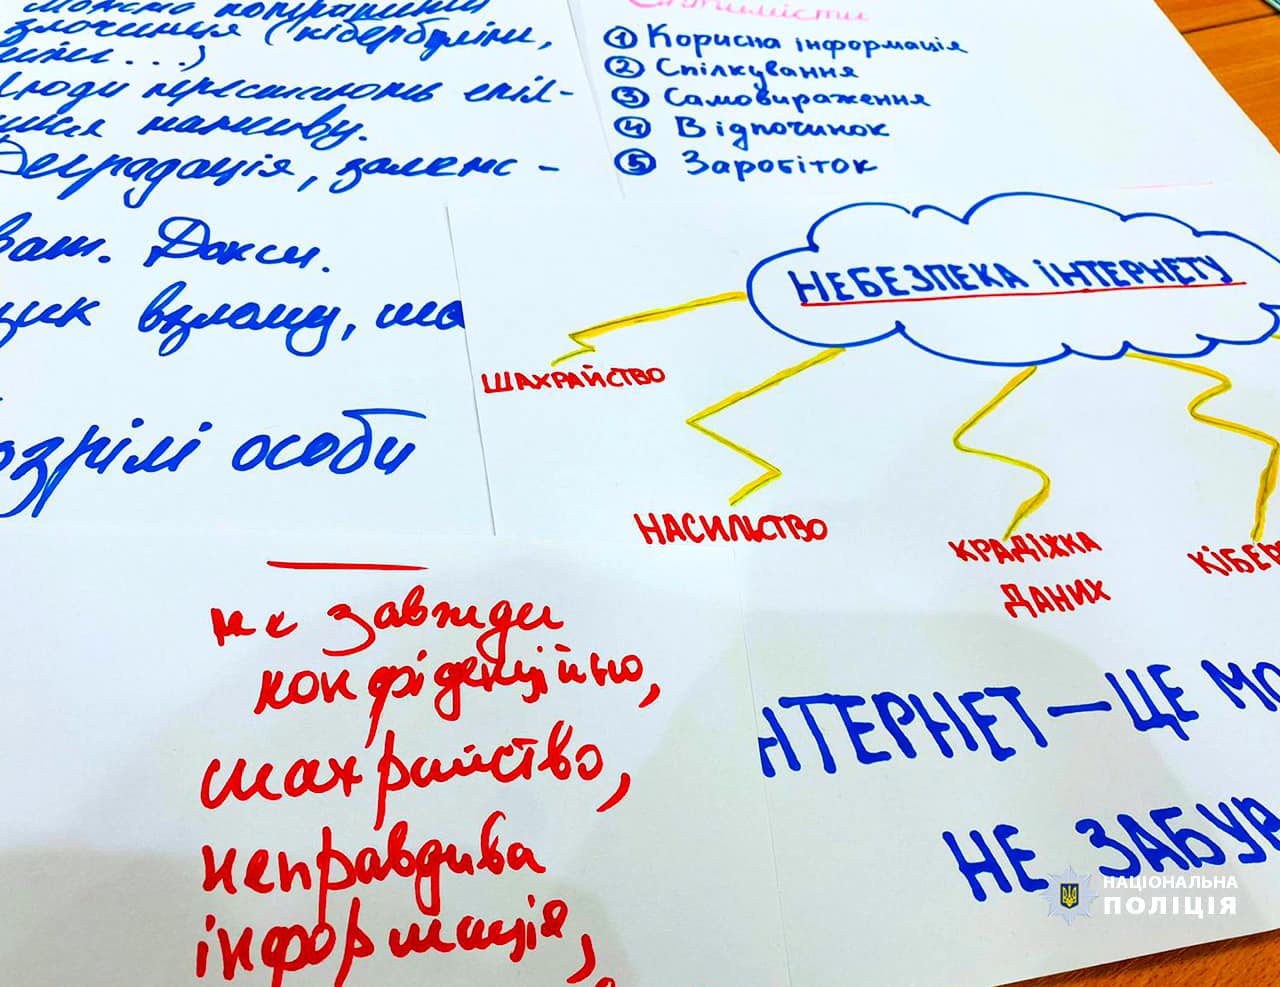 можна потрапити
злочинця (кібербулінг,
Люди перестають спіл-
наживу.
Деградація, залеж-
Докси.
взлому, що
особи
① Корисна інформація
② Спілкування
③ Самовираження
④ Відпочинок
⑤ Заробіток
НЕБЕЗПЕКА ІНТЕРНЕТУ
ШАХРАЙСТВО
НАСИЛЬСТВО
КРАДІЖКА
ДАНИХ
КІБЕР
не завжди
конфіденційно,
шахрайство,
неправдива
інформація,
НТЕРНЕТ—ЦЕ МО
НЕ ЗАБУВ
НАЦІОНАЛЬНА
ПОЛІЦІЯ